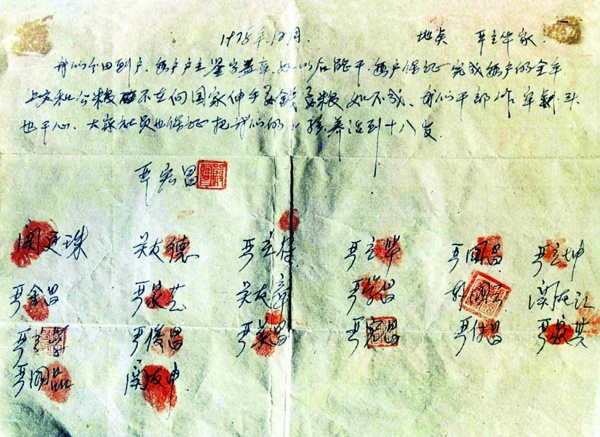 1978年12月. 地点 严立华家.
我们分田到户.每户户主签字盖章.如以后能干.每户保证完成每户的全年
上交和公粮 不在向国家伸手要钱要粮.如不成.我们干部作牢刹头
也干心.大家社员也保证把我们的小孩养活到十八岁.
严宏昌
关廷珠 关友德 严立符 严立华 严国昌 严立坤
严金昌 严家芝 关友章 严学昌 韩国云 关友江
严立学 严俊昌 严美昌 严宏昌 严付昌 严家其
严国品 关友申